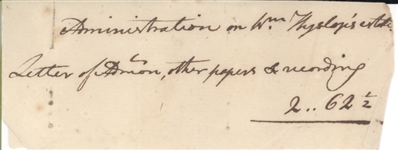 Administration on Wm. Hyslop's estate
Letter of Admon, other papers & recording
2.. 62 ½